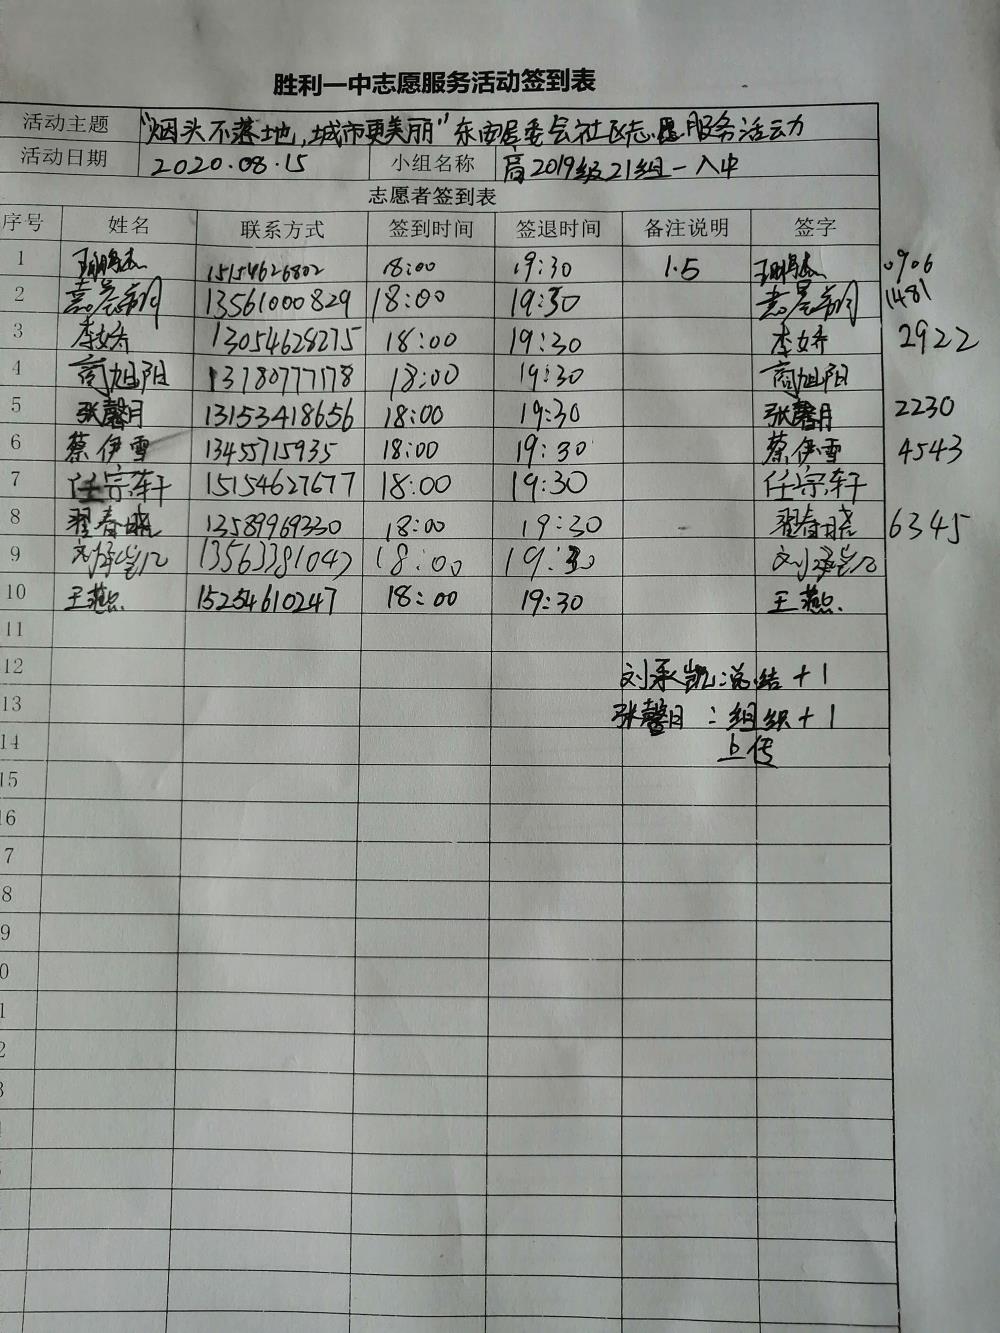 胜利一中志愿服务活动签到表
活动主题 "烟头不落地,城市更美丽"东西居委会社区志愿服务活动
活动日期 2020.08.15 小组名称 高2019级21组一入中
志愿者签到表
序号 姓名 联系方式 签到时间 签退时间 备注说明 签字
1 15154626802 18:00 19:30 1.5 0906
2 13561000829 18:00 19:30 1481
3 李娇 13054628275 18:00 19:30 李娇 2922
4 商旭阳 13780777178 18:00 19:30 商旭阳
5 张馨月 13153418656 18:00 19:30 张馨月 2230
6 蔡伊雪 13455715935 18:00 19:30 蔡伊雪 4543
7 任宗轩 15154627677 18:00 19:30 任宗轩
8 翟春晓 13589969330 18:00 19:30 翟春晓 6345
9 刘承凯 13563381047 18:00 19:30 刘承凯
10 王燕 15254610247 18:00 19:30 王燕
11
12 刘承凯:总结+1
13 张馨月:组织+1
14 上传
15
16
7
8
9
0
1
2
3